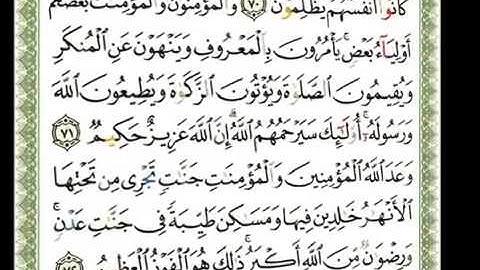 كَانُوٓا۟ أَنفُسَهُمْ يَظْلِمُونَ ٧٠ وَٱلْمُؤْمِنُونَ وَٱلْمُؤْمِنَـٰتُ بَعْضُهُمْ
أَوْلِيَآءُ بَعْضٍ ۚ يَأْمُرُونَ بِٱلْمَعْرُوفِ وَيَنْهَوْنَ عَنِ ٱلْمُنكَرِ
وَيُقِيمُونَ ٱلصَّلَوٰةَ وَيُؤْتُونَ ٱلزَّكَوٰةَ وَيُطِيعُونَ ٱللَّهَ
وَرَسُولَهُۥٓ ۚ أُو۟لَـٰٓئِكَ سَيَرْحَمُهُمُ ٱللَّهُ ۗ إِنَّ ٱللَّهَ عَزِيزٌ حَكِيمٌ ٧١
وَعَدَ ٱللَّهُ ٱلْمُؤْمِنِينَ وَٱلْمُؤْمِنَـٰتِ جَنَّـٰتٍ تَجْرِى مِن تَحْتِهَا
ٱلْأَنْهَـٰرُ خَـٰلِدِينَ فِيهَا وَمَسَـٰكِنَ طَيِّبَةً فِى جَنَّـٰتِ عَدْنٍ ۚ
وَرِضْوَٰنٌ مِّنَ ٱللَّهِ أَكْبَرُ ۚ ذَٰلِكَ هُوَ ٱلْفَوْزُ ٱلْعَظِيمُ ٧٢